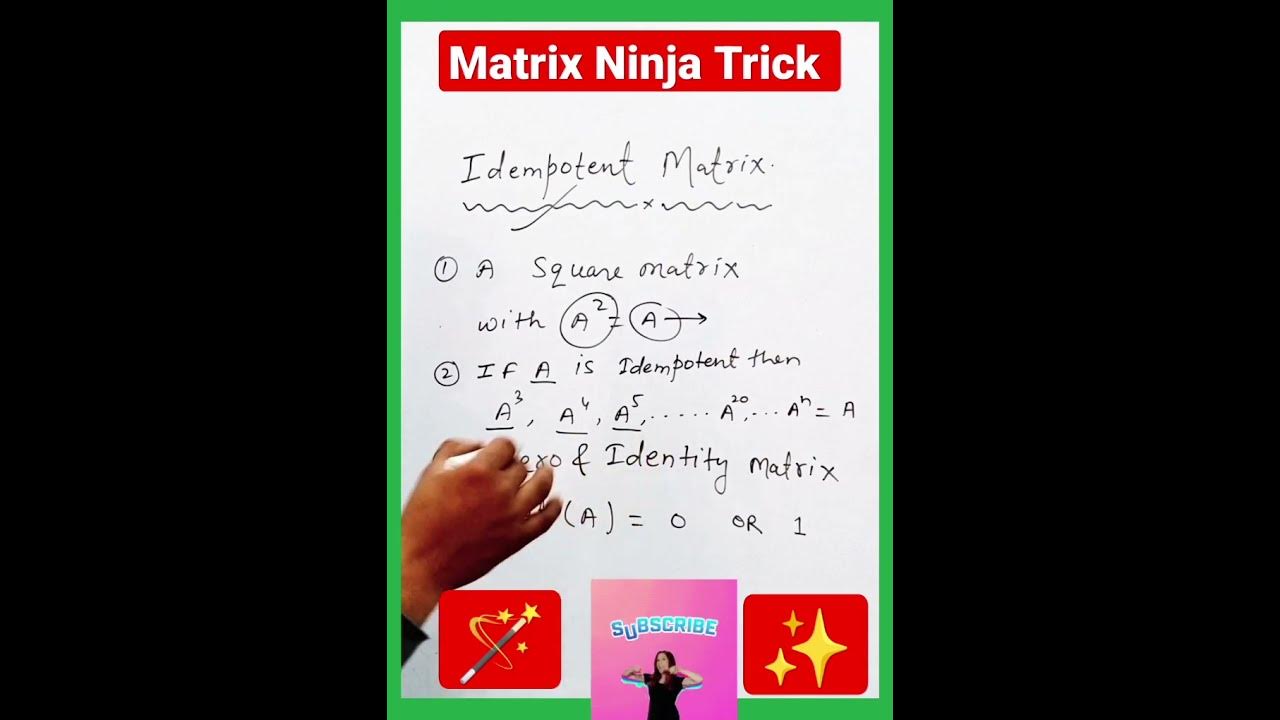 Matrix Ninja Trick
Idempotent Matrix.
① A Square matrix
with A² = A →
② If A is Idempotent then
A³, A⁴, A⁵, ..... A²⁰, ... Aⁿ = A
& Identity matrix
(A) = 0 OR 1
SUBSCRIBE